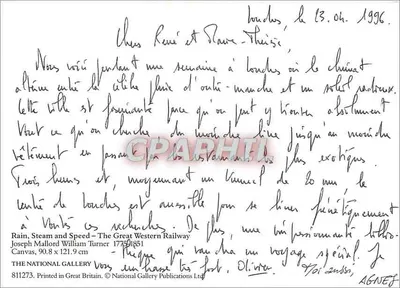 Londres, le 23.04.1996.
Chers René et Marie-Thérèse,
Nous voici pendant une semaine à Londres où le climat
alterne entre la célèbre pluie d'outre-manche et un soleil radieux.
Cette ville est fascinante parce qu'on peut y trouver absolument
tout ce qu'on cherche du moindre livre jusqu'au moindre
vêtement en passant par les restaurants les plus exotiques.
Trois heures et moyennant un tunnel de 20 mn le
centre de Londres est accessible pour se livrer frénétiquement
à toutes ces recherches. De plus, une impressionnante biblio-
thèque qui vaudra un voyage spécial. Je
vous embrasse très fort, Olivier.
Moi aussi,
AGNES
CPAPHIL
Rain, Steam and Speed – The Great Western Railway
Joseph Mallord William Turner 1775-1851
Canvas, 90.8 x 121.9 cm
THE NATIONAL GALLERY
811273. Printed in Great Britain. © National Gallery Publications Ltd